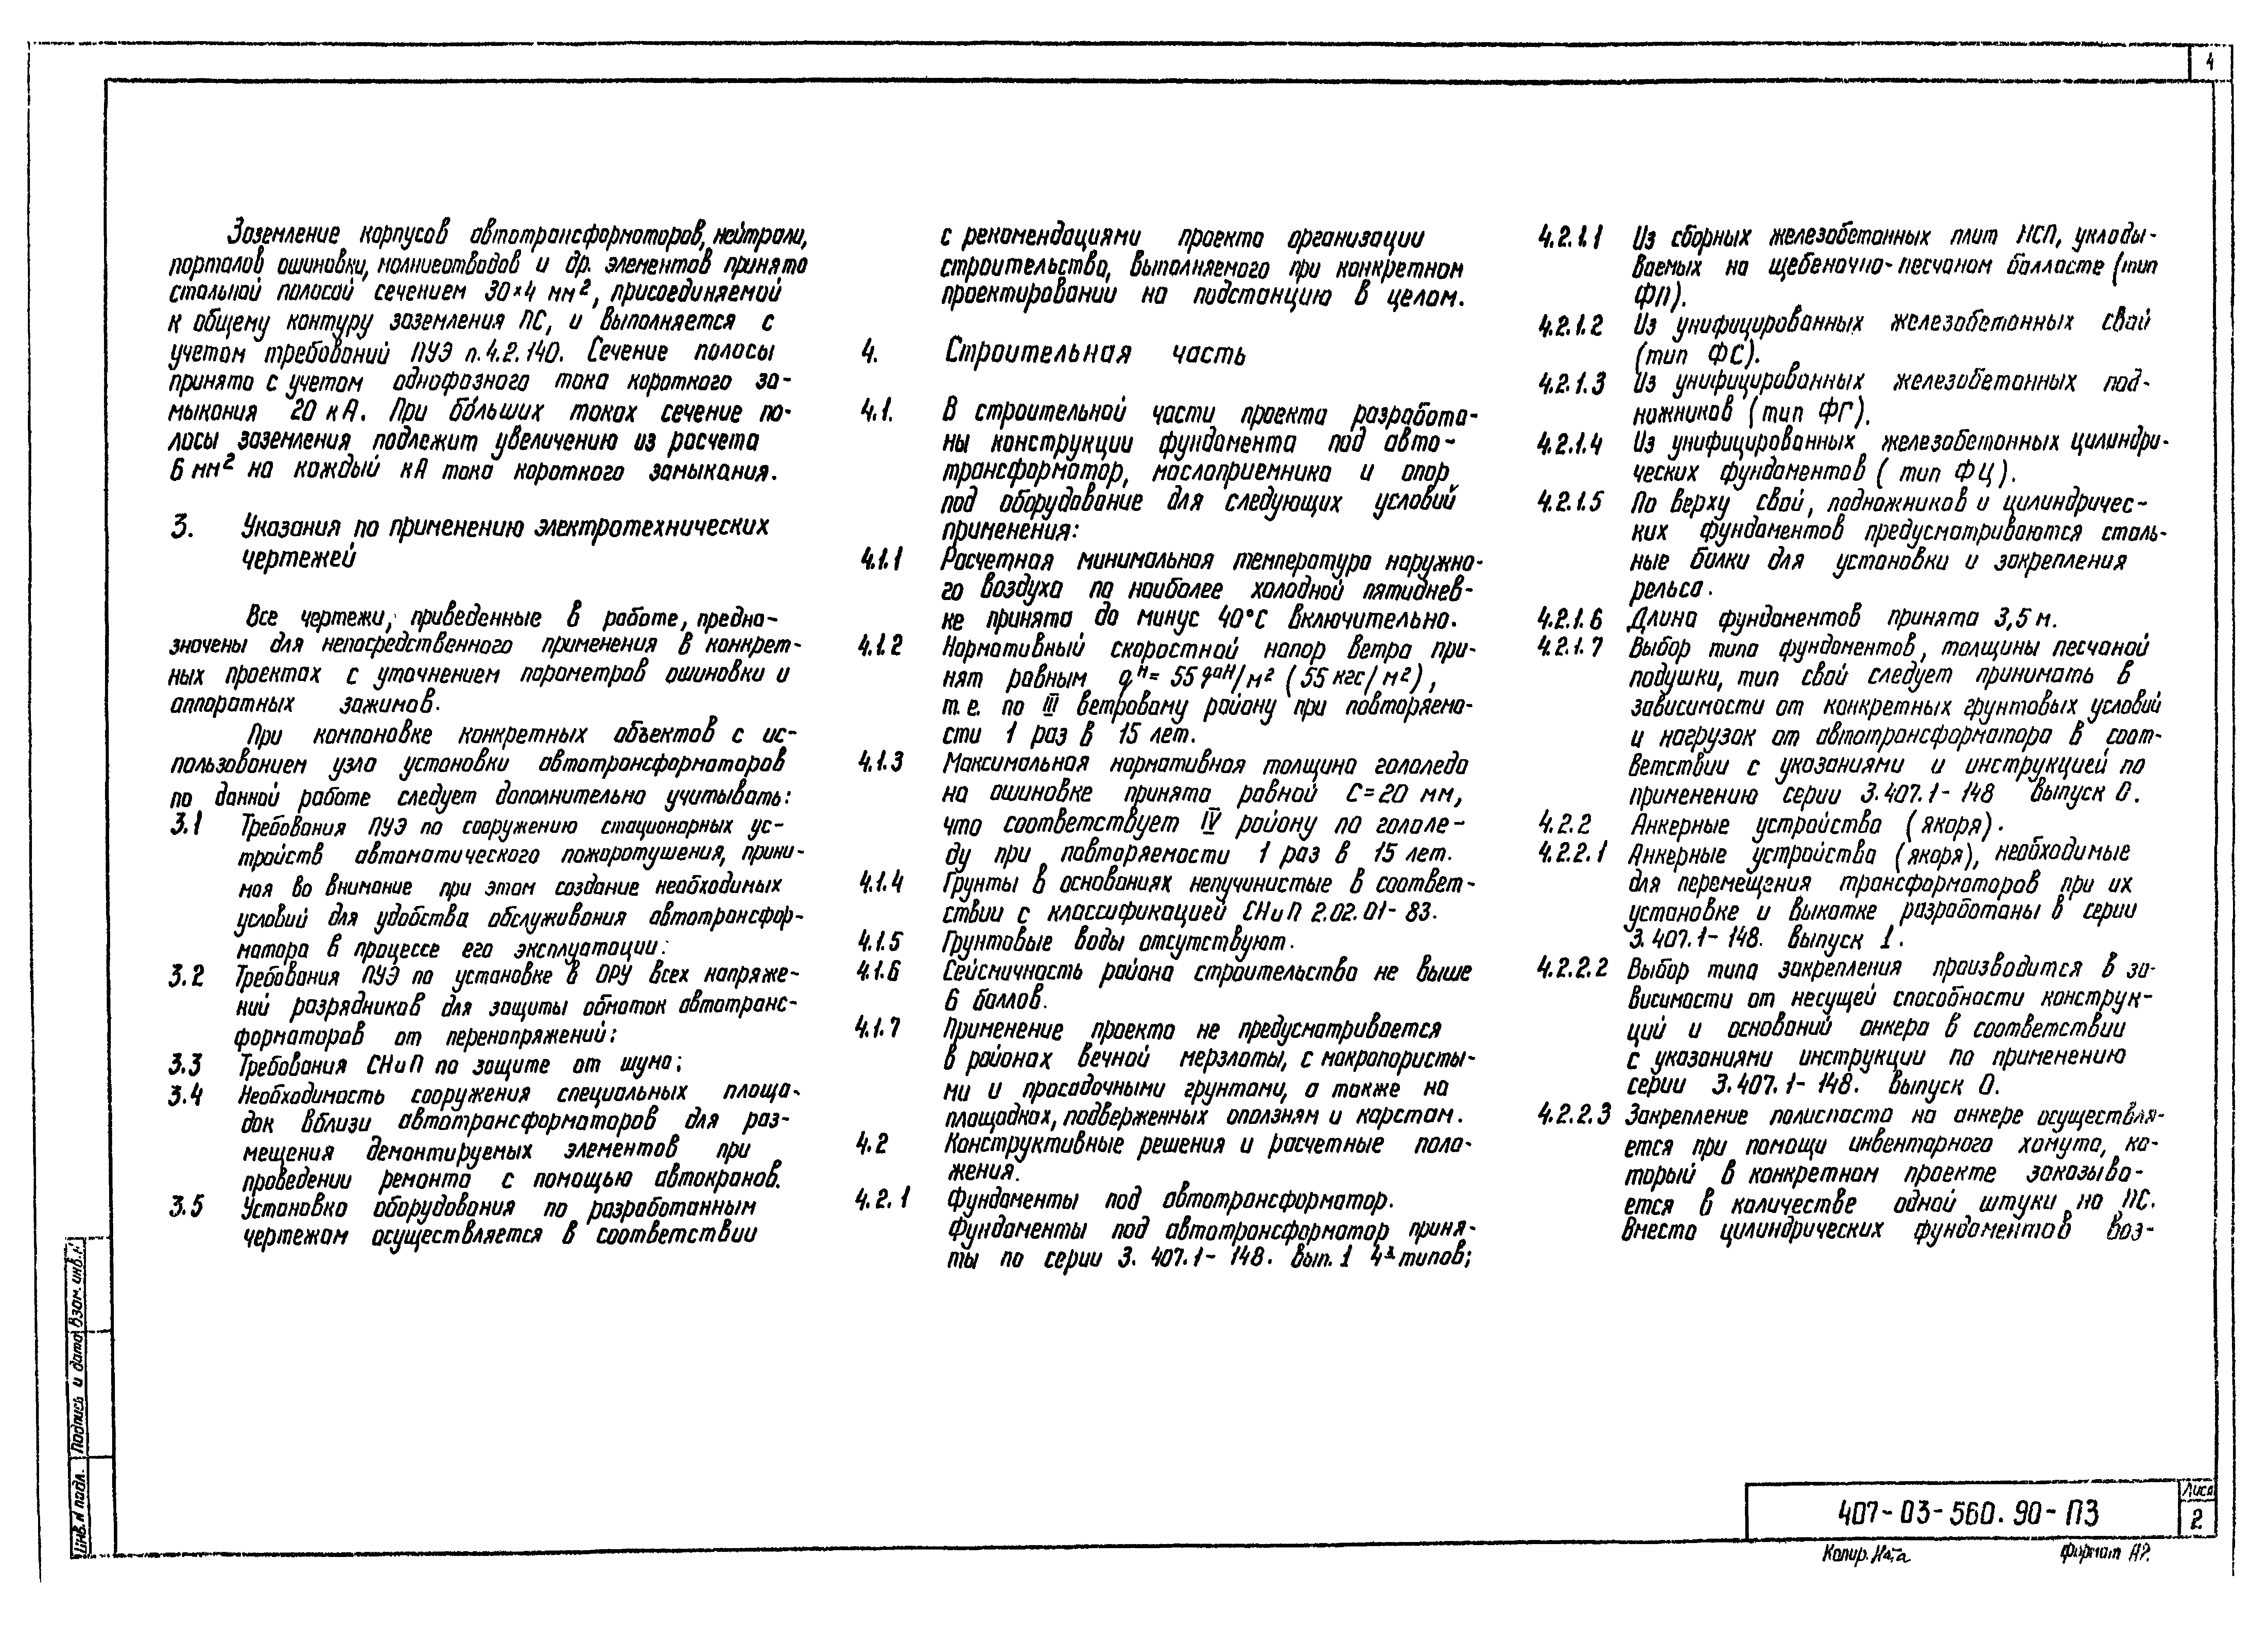 4
Заземление корпусов автотрансформаторов, нейтрали,
порталов ошиновки, молниеотводов и др. элементов принято
стальной полосой сечением 30×4 мм², присоединяемой
к общему контуру заземления ПС, и выполняется с
учетом требований ПУЭ п.4.2.140. Сечение полосы
принято с учетом однофазного тока короткого за-
мыкания 20 кА. При бо́льших токах сечение по-
лосы заземления подлежит увеличению из расчета
6 мм² на каждый кА тока короткого замыкания.
3. Указания по применению электротехнических
чертежей
Все чертежи, приведенные в работе, предна-
значены для непосредственного применения в конкрет-
ных проектах с уточнением параметров ошиновки и
аппаратных зажимов.
При компановке конкретных объектов с ис-
пользованием узла установки автотрансформаторов
по данной работе следует дополнительно учитывать:
3.1 Требования ПУЭ по сооружению стационарных ус-
тройств автоматического пожаротушения, прини-
мая во внимание при этом создание необходимых
условий для удобства обслуживания автотрансфор-
матора в процессе его эксплуатации:
3.2 Требования ПУЭ по установке в ОРУ всех напряже-
ний разрядников для защиты обмоток автотранс-
форматоров от перенапряжений;
3.3 Требования СНиП по защите от шума;
3.4 Необходимость сооружения специальных площа-
док вблизи автотрансформаторов для раз-
мещения демонтируемых элементов при
проведении ремонта с помощью автокранов.
3.5 Установка оборудования по разработанным
чертежам осуществляется в соответствии
с рекомендациями проекта организации
строительства, выполняемого при конкретном
проектировании на подстанцию в целом.
4. Строительная часть
4.1. В строительной части проекта разработа-
ны конструкции фундамента под авто-
трансформатор, маслоприемника и опор
под оборудование для следующих условий
применения:
4.1.1 Расчетная минимальная температура наружно-
го воздуха по наиболее холодной пятиднев-
ке принята до минус 40°С включительно.
4.1.2 Нормативный скоростной напор ветра при-
нят равным qᴴ= 55 gаН/м² (55 кгс/м²),
т.е. по III ветровому району при повторяемо-
сти 1 раз в 15 лет.
4.1.3 Максимальная нормативная толщина гололеда
на ошиновке принята равной С=20 мм,
что соответствует IV району по гололе-
ду при повторяемости 1 раз в 15 лет.
4.1.4 Грунты в основаниях непучинистые в соответ-
ствии с классификацией СНиП 2.02.01-83.
4.1.5 Грунтовые воды отсутствуют.
4.1.6 Сейсмичность района строительства не выше
6 баллов.
4.1.7 Применение проекта не предусматривается
в районах вечной мерзлоты, с макропористы-
ми и просадочными грунтами, а также на
площадках, подверженных оползням и карстам.
4.2 Конструктивные решения и расчетные поло-
жения.
4.2.1 Фундаменты под автотрансформатор.
Фундаменты под автотрансформатор приня-
ты по серии 3.407.1-148. вып.1 4х типов;
4.2.1.1 Из сборных железобетонных плит НСП, уклады-
ваемых на щебеночно-песчаном балласте (тип
ФП).
4.2.1.2 Из унифицированных железобетонных свай
(тип ФС).
4.2.1.3 Из унифицированных железобетонных под-
ножников (тип ФГ).
4.2.1.4 Из унифицированных железобетонных цилиндри-
ческих фундаментов (тип ФЦ).
4.2.1.5 По верху свай, подножников и цилиндричес-
ких фундаментов предусматриваются сталь-
ные балки для установки и закрепления
рельса.
4.2.1.6 Длина фундаментов принята 3,5 м.
4.2.1.7 Выбор типа фундаментов, толщины песчаной
подушки, тип свай следует принимать в
зависимости от конкретных грунтовых условий
и нагрузок от автотрансформатора в соот-
ветствии с указаниями и инструкцией по
применению серии 3.407.1-148 выпуск 0.
4.2.2 Анкерные устройства (якоря).
4.2.2.1 Анкерные устройства (якоря), необходимые
для перемещения трансформаторов при их
установке и выкатке разработаны в серии
3.407.1-148. выпуск 1.
4.2.2.2 Выбор типа закрепления производится в за-
висимости от несущей способности конструк-
ций и оснований анкера в соответствии
с указаниями инструкции по применению
серии 3.407.1-148. выпуск 0.
4.2.2.3 Закрепление полиспаста на анкере осуществля-
ется при помощи инвентарного хомута, ко-
торый в конкретном проекте заказыва-
ется в количестве одной штуки на ПС.
Вместо цилиндрических фундаментов воз-
Взам. инв. №
Подпись и дата
Инв. № подл.
407-03-560.90-ПЗ
Лист
2
Копир.
Формат А2